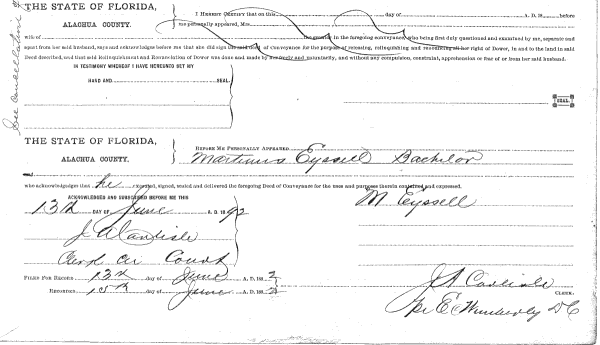 THE STATE OF FLORIDA,
ALACHUA COUNTY.
I HEREBY CERTIFY that on this day of A. D. 18 before
me personally appeared, Mrs.
wife of the grantor in the foregoing conveyance, who being first duly questioned and examined by me, separate and
apart from her said husband, says and acknowledges before me that she did sign the said deed of conveyance for the purpose of releasing, relinquishing and renouncing all her right of Dower, in and to the land in said
Deed described, and that said Relinquishment and Renunciation of Dower was done and made by her freely and voluntarily, and without any compulsion, constraint, apprehension or fear of or from her said husband.
IN TESTIMONY WHEREOF I HAVE HEREUNTO SET MY
HAND AND SEAL.
SEAL.
See cancellation
THE STATE OF FLORIDA,
ALACHUA COUNTY.
BEFORE ME PERSONALLY APPEARED
Martinus Eyssell Bachelor
and
who acknowledges that he executed, signed, sealed and delivered the foregoing Deed of Conveyance for the uses and purposes therein contained and expressed.
ACKNOWLEDGED AND SUBSCRIBED BEFORE ME THIS
13th DAY OF June A. D. 1892
M Eyssell
J A Carlisle
Clerk Cir Court
FILED FOR RECORD 13th day of June A. D. 1892
RECORDED 15th day of June A. D. 1892
J A Carlisle
CLERK.
pr E Wimberly D C